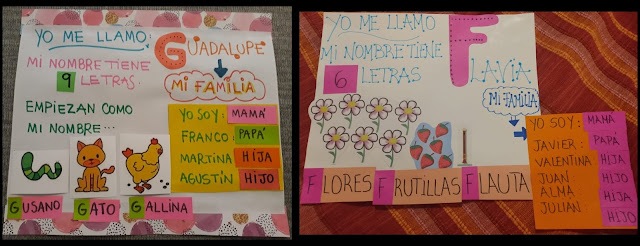 YO ME LLAMO: GUADALUPE
MI NOMBRE TIENE
9 LETRAS.
MI FAMILIA
EMPIEZAN COMO
MI NOMBRE...
YO SOY: MAMÁ
FRANCO: PAPÁ
MARTINA HIJA
AGUSTÍN HIJO
GUSANO GATO GALLINA
YO ME LLAMO FLAVIA
MI NOMBRE TIENE
6 LETRAS
MI FAMILIA
YO SOY: MAMÁ
JAVIER: PAPÁ
VALENTINA HIJA
JUAN HIJO
ALMA HIJA
JULIAN HIJO
FLORES FRUTILLAS FLAUTA